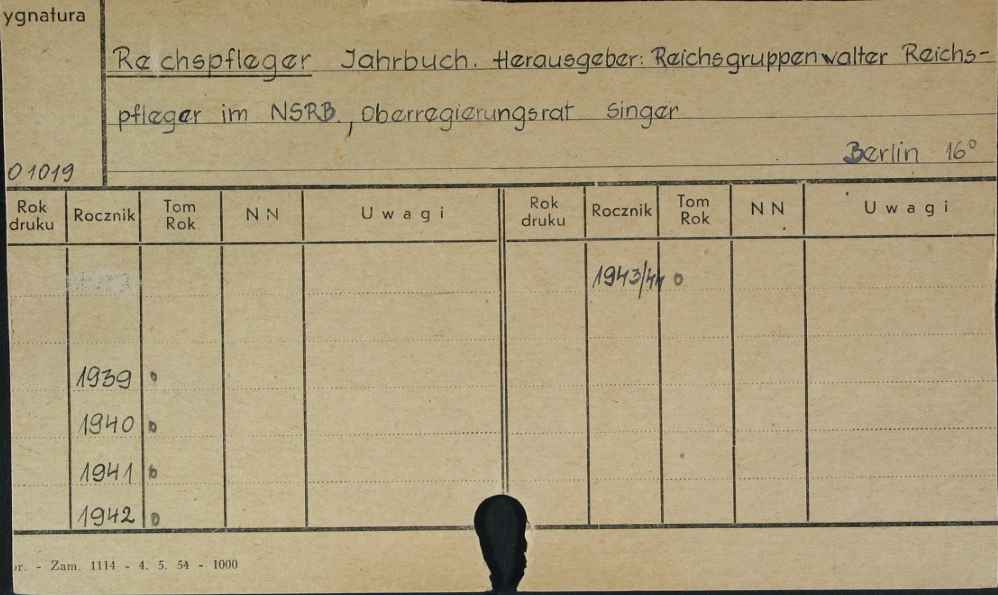 ygnatura
Reichspfleger Jahrbuch. Herausgeber: Reichsgruppenwalter Reichs-
pfleger im NSRB., Oberregierungsrat Singer
Berlin 16°
O 1019
Rok druku Rocznik Tom Rok NN Uwagi Rok druku Rocznik Tom Rok NN Uwagi
1943/44 o
1939 o
1940 o
1941 o
1942 o
r. - Zam. 1114 - 4. 5. 54 - 1000